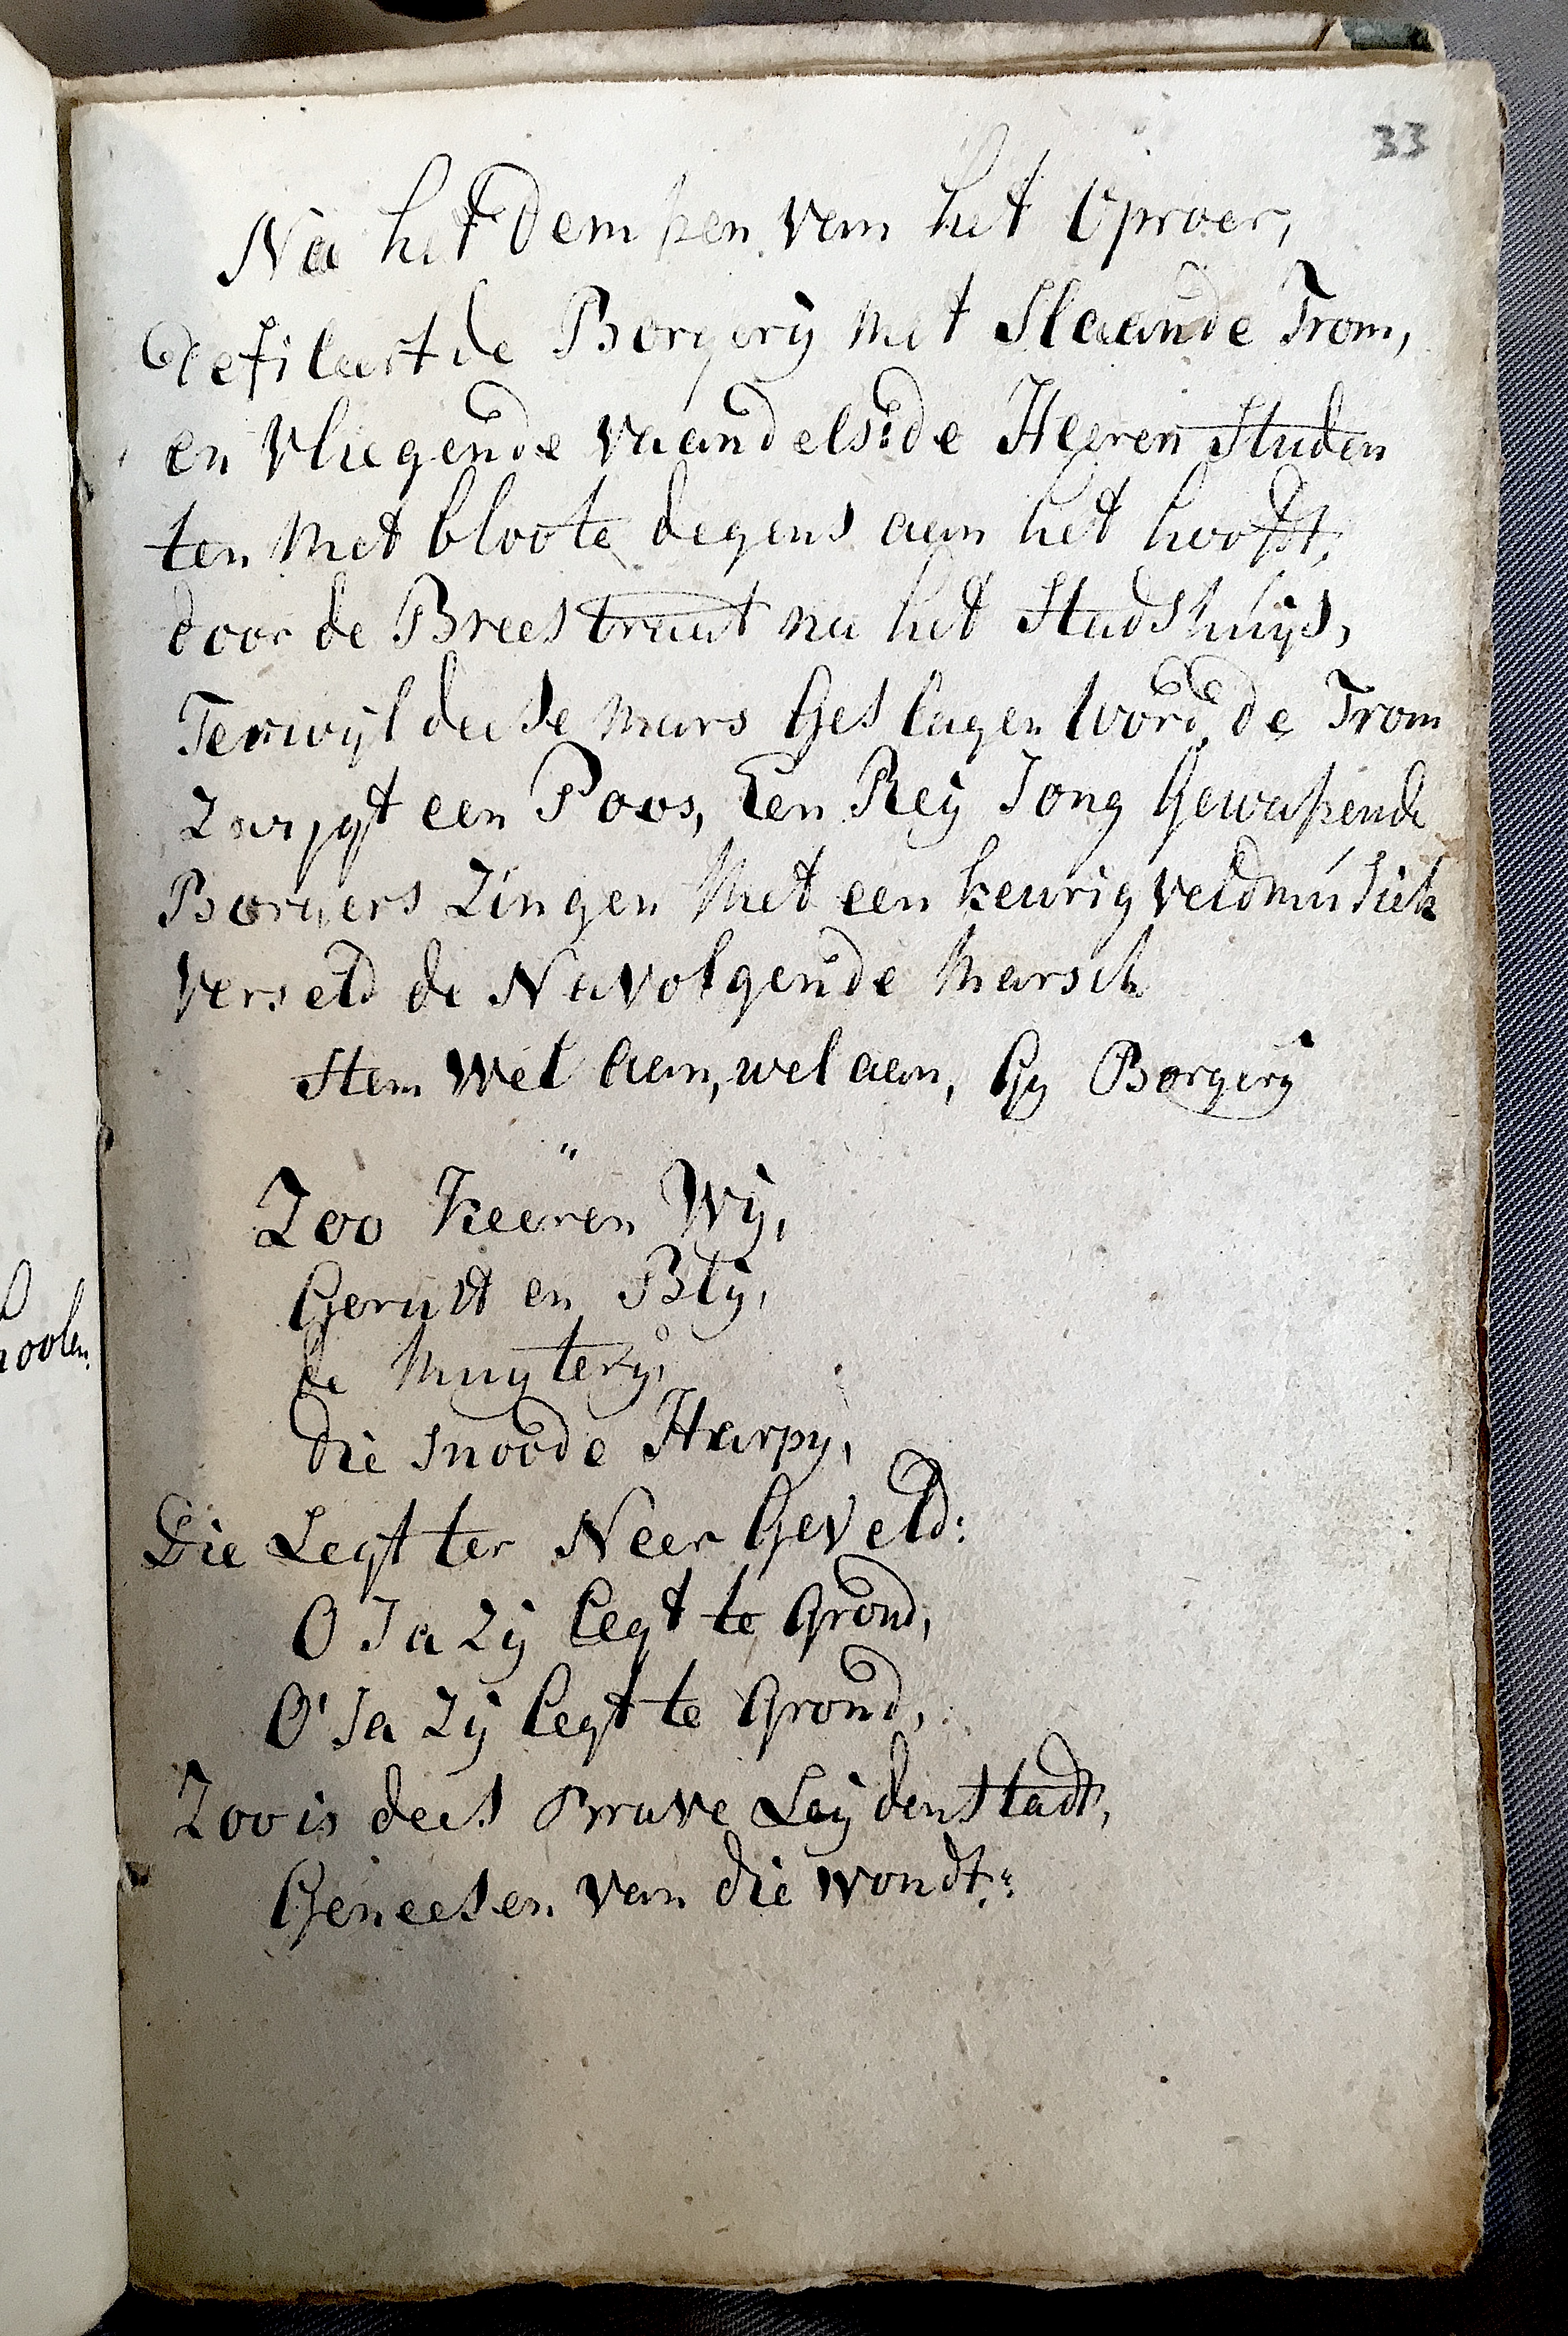 33
Na het dempen van het Oproer,
defileert de Borgerij met Slaande Trom,
en Vliegende vaandels: de Heeren Studen
ten Met bloote degens aan het hooft,
door de Breestraat na het Stadshuijs,
Terwijl deese mars Geslagen word, de Trom
Zwygt een Poos, Een Reij Jong Gewapende
Borgers Zingen Met een keurig veldmusiek
verseld de Navolgende Marsch
Stem wel aan, wel aan, Gy Borgerij
"
Zoo Keeren Wij,
Gerust en Blij,
de Muyterij,
die Snoode Harpy,
Die Legt ter Neer Geveld:
O Ja Zij legt te Grond,
O' Ja Zij legt te Grond,
Zoo is deese Brave Leijdenstadt,
Geneesen van die wondt:
oolen.